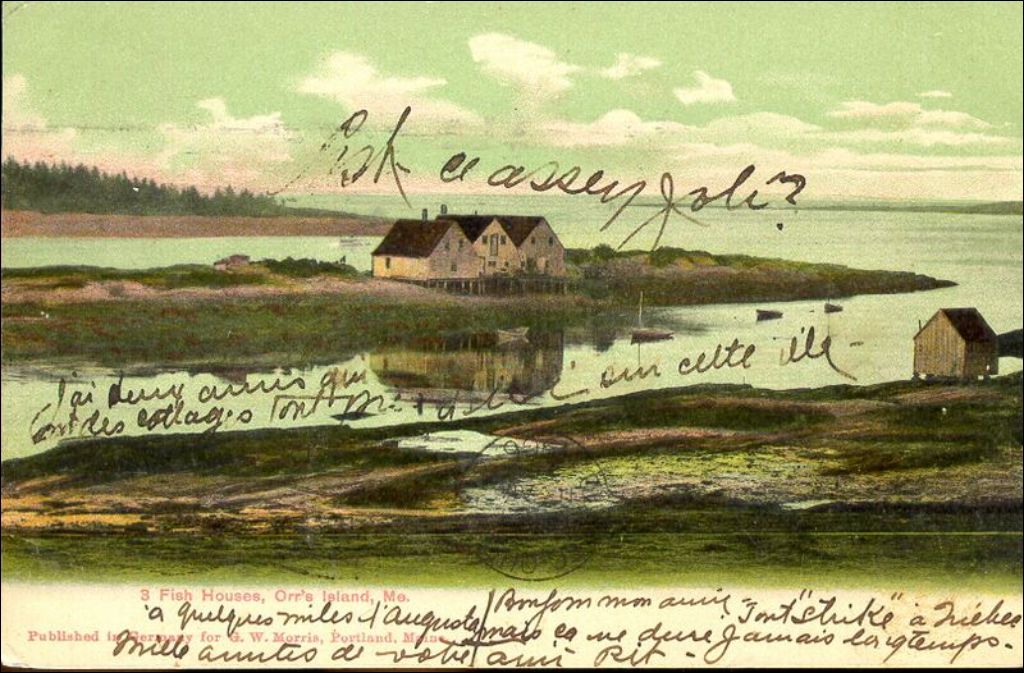 Est ce assez joli?
J'ai deux amis qui
ont des cottages tout
sur cette île -
3 Fish Houses, Orr's Island, Me.
à quelques miles d'Augusta
Published in Germany for G. W. Morris, Portland, Maine
Mille amitiés de votre ami
Bonjour mon amie - Tout "strike" à Québec
mais ça ne dure jamais longtemps.